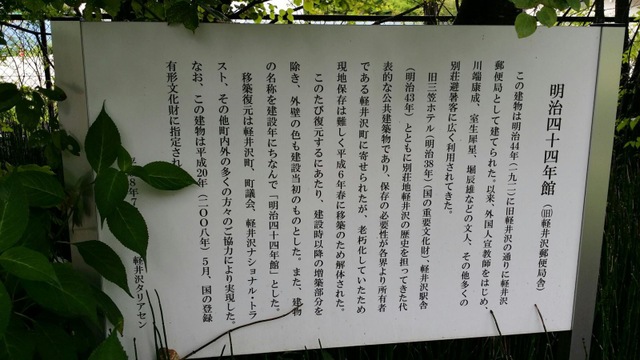 明治四十四年館(旧軽井沢郵便局舎)
この建物は明治44年(一九一一)に旧軽井沢の通りに軽井沢
郵便局として建てられた。以来、外国人宣教師をはじめ、
川端康成、室生犀星、堀辰雄などの文人、その他多くの
別荘避暑客に広く利用されてきた。
旧三笠ホテル(明治38年)(国の重要文化財)、軽井沢駅舎
(明治43年)とともに別荘地軽井沢の歴史を担ってきた代
表的な公共建築物であり、保存の必要性が各界より所有者
である軽井沢町に寄せられたが、老朽化していたため
現地保存は難しく平成6年春に移築のため解体された。
このたび復元するにあたり、建設時以降の増築部分を
除き、外壁の色も建設当初のものとした。また、建物
の名称を建設年にちなんで「明治四十四年館」とした。
移築復元は軽井沢町、町議会、軽井沢ナショナル・トラ
スト、その他町内外の多くの方々のご協力により実現した。
なお、この建物は平成20年(二〇〇八年)5月、国の登録
有形文化財に指定さ
8年7
軽井沢タリアセン